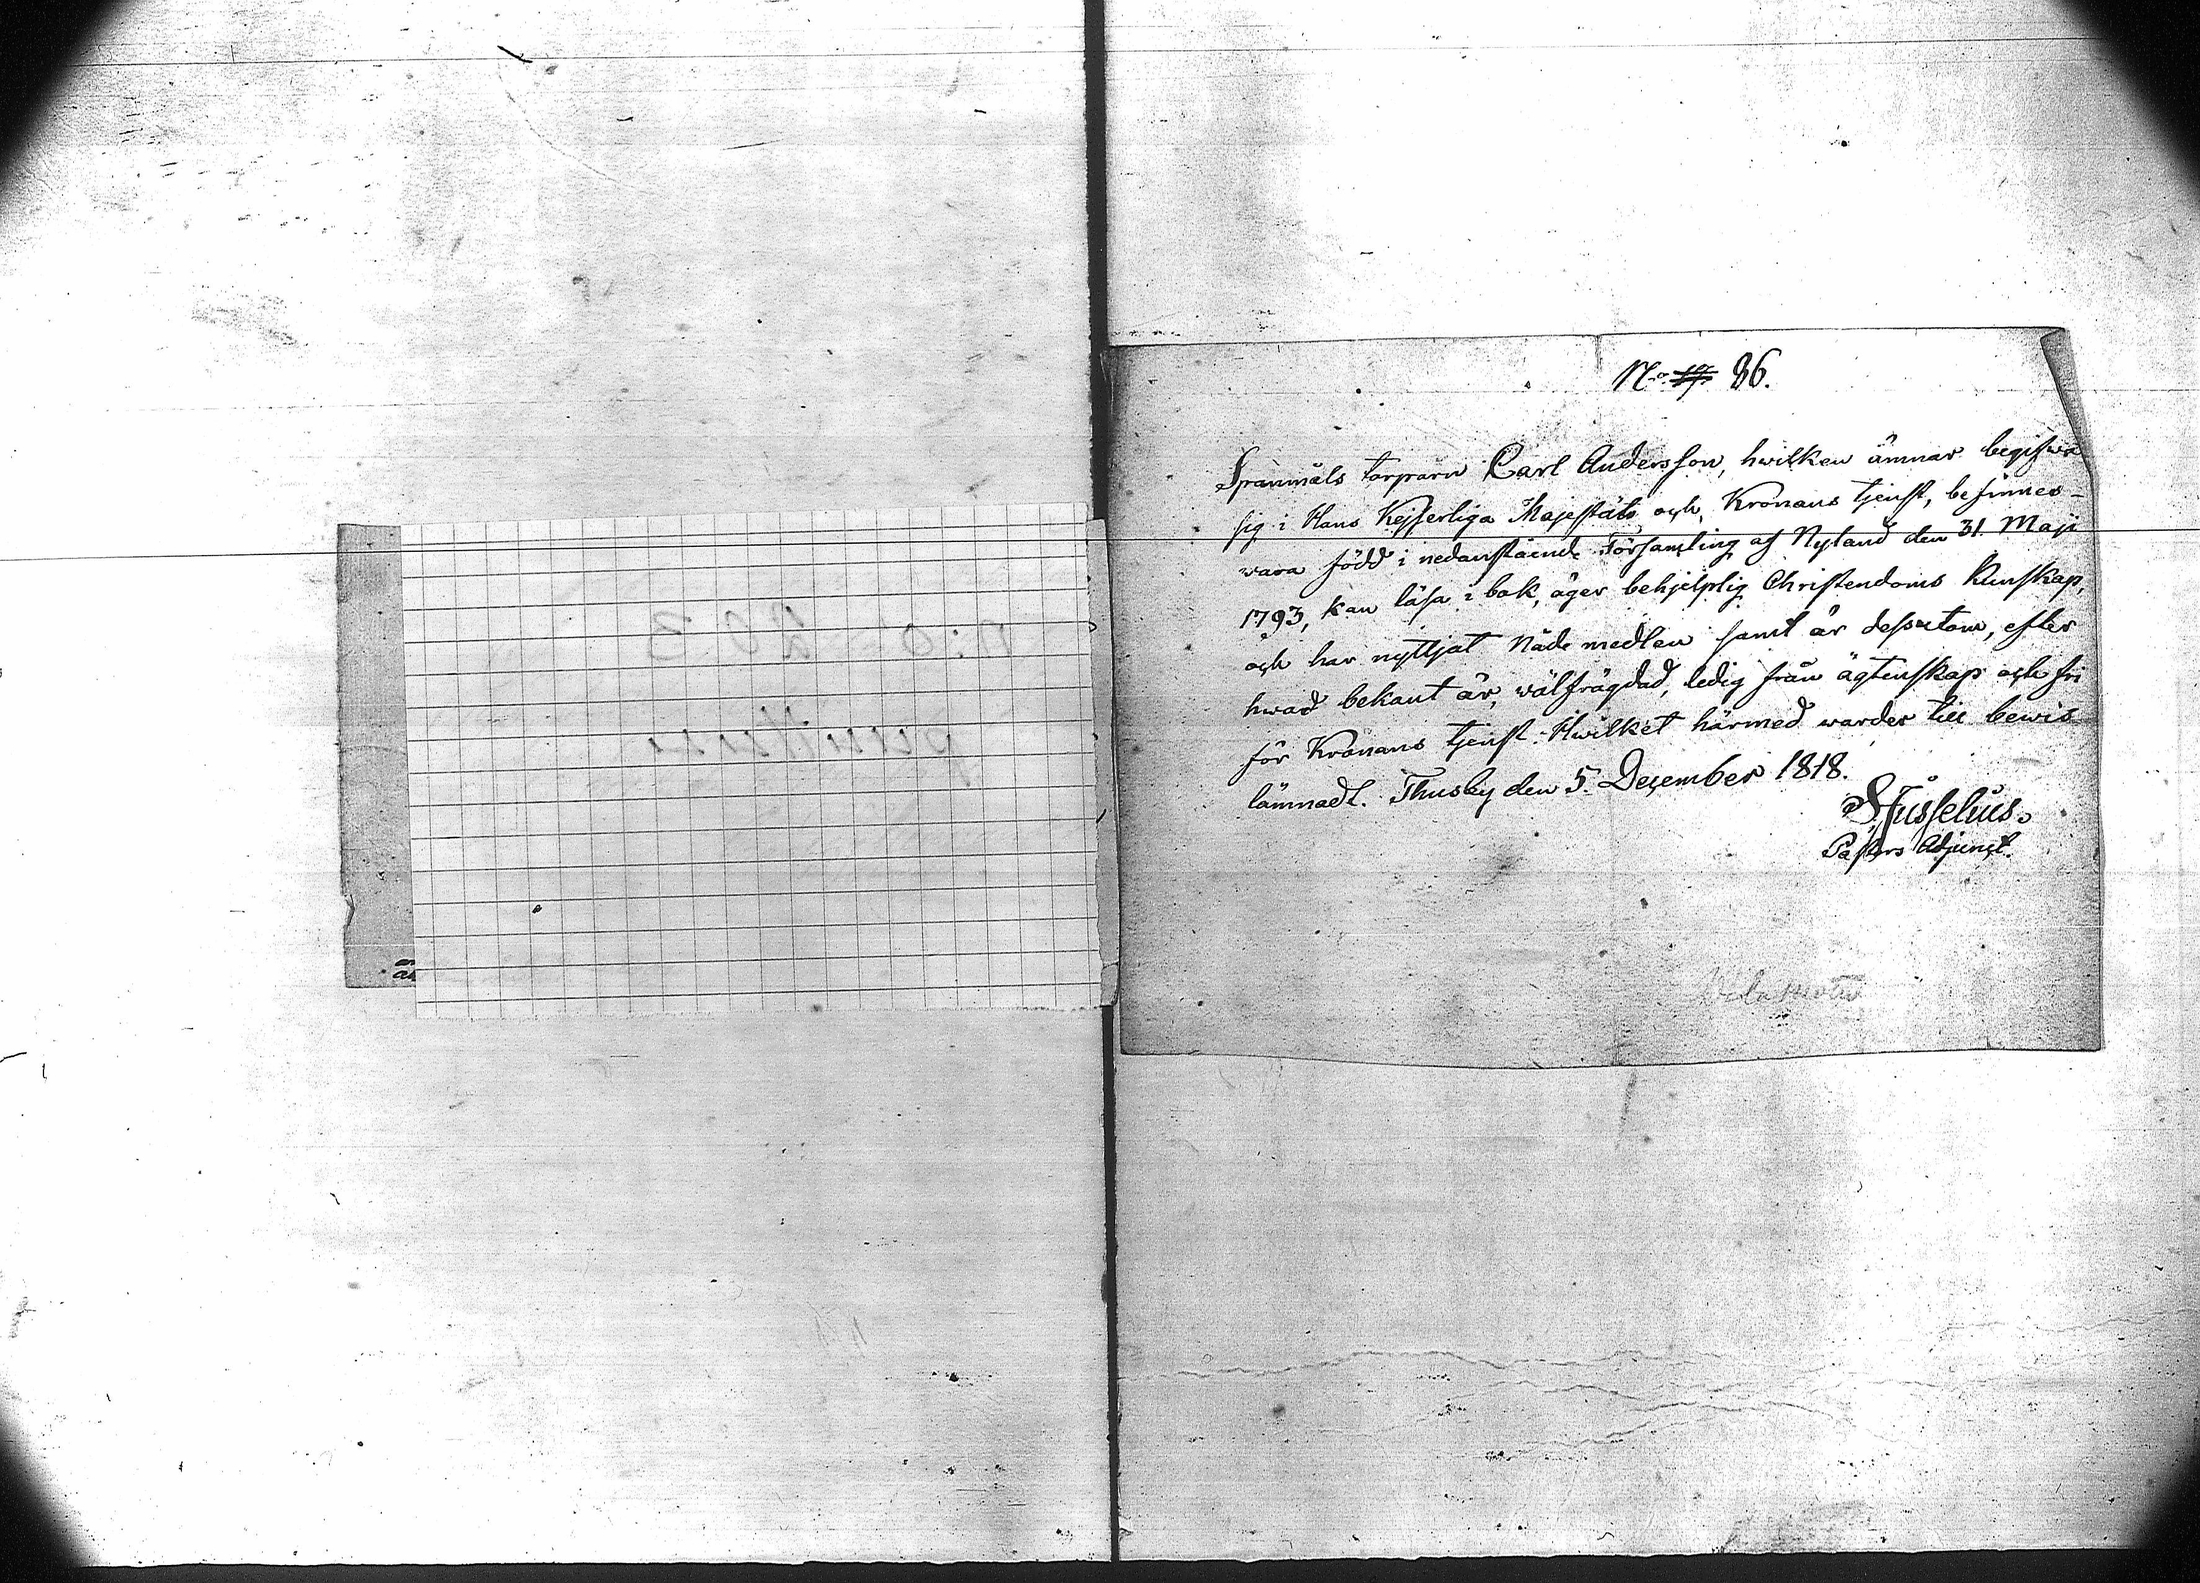 N:o 86.
Spanmåls torparn Carl Andersson, hwilken ämnar begifwa
sig i Hans Kejserliga Majestäts och Kronans tjenst, befinnes
wara född i nedanstående Församling af Nyland den 31. Maji
1793, kan läsa i bok, äger behjelplig Christendoms Kunskap,
och har nyttjat Nåde medlen samt är dessutom, efter
hwad bekant är, wälfrägdad, ledig från ägtenskap och fri
för Kronans tjenst. Hwilket härmed warder till bewis
lämnadt. Thusby den 5. December 1818.
Pastors Adjunct.
n:o 203
puuttuu